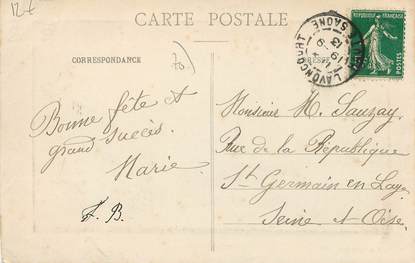 12 f
CARTE POSTALE
CORRESPONDANCE
RÉPUBLIQUE FRANÇAISE
POSTES
LAVONCOURT
SAONE
70
Bonne fête et
grand succès.
Marie
F. B.
Monsieur M. Sauzay
Rue de la République
St Germain en Laye
Seine et Oise